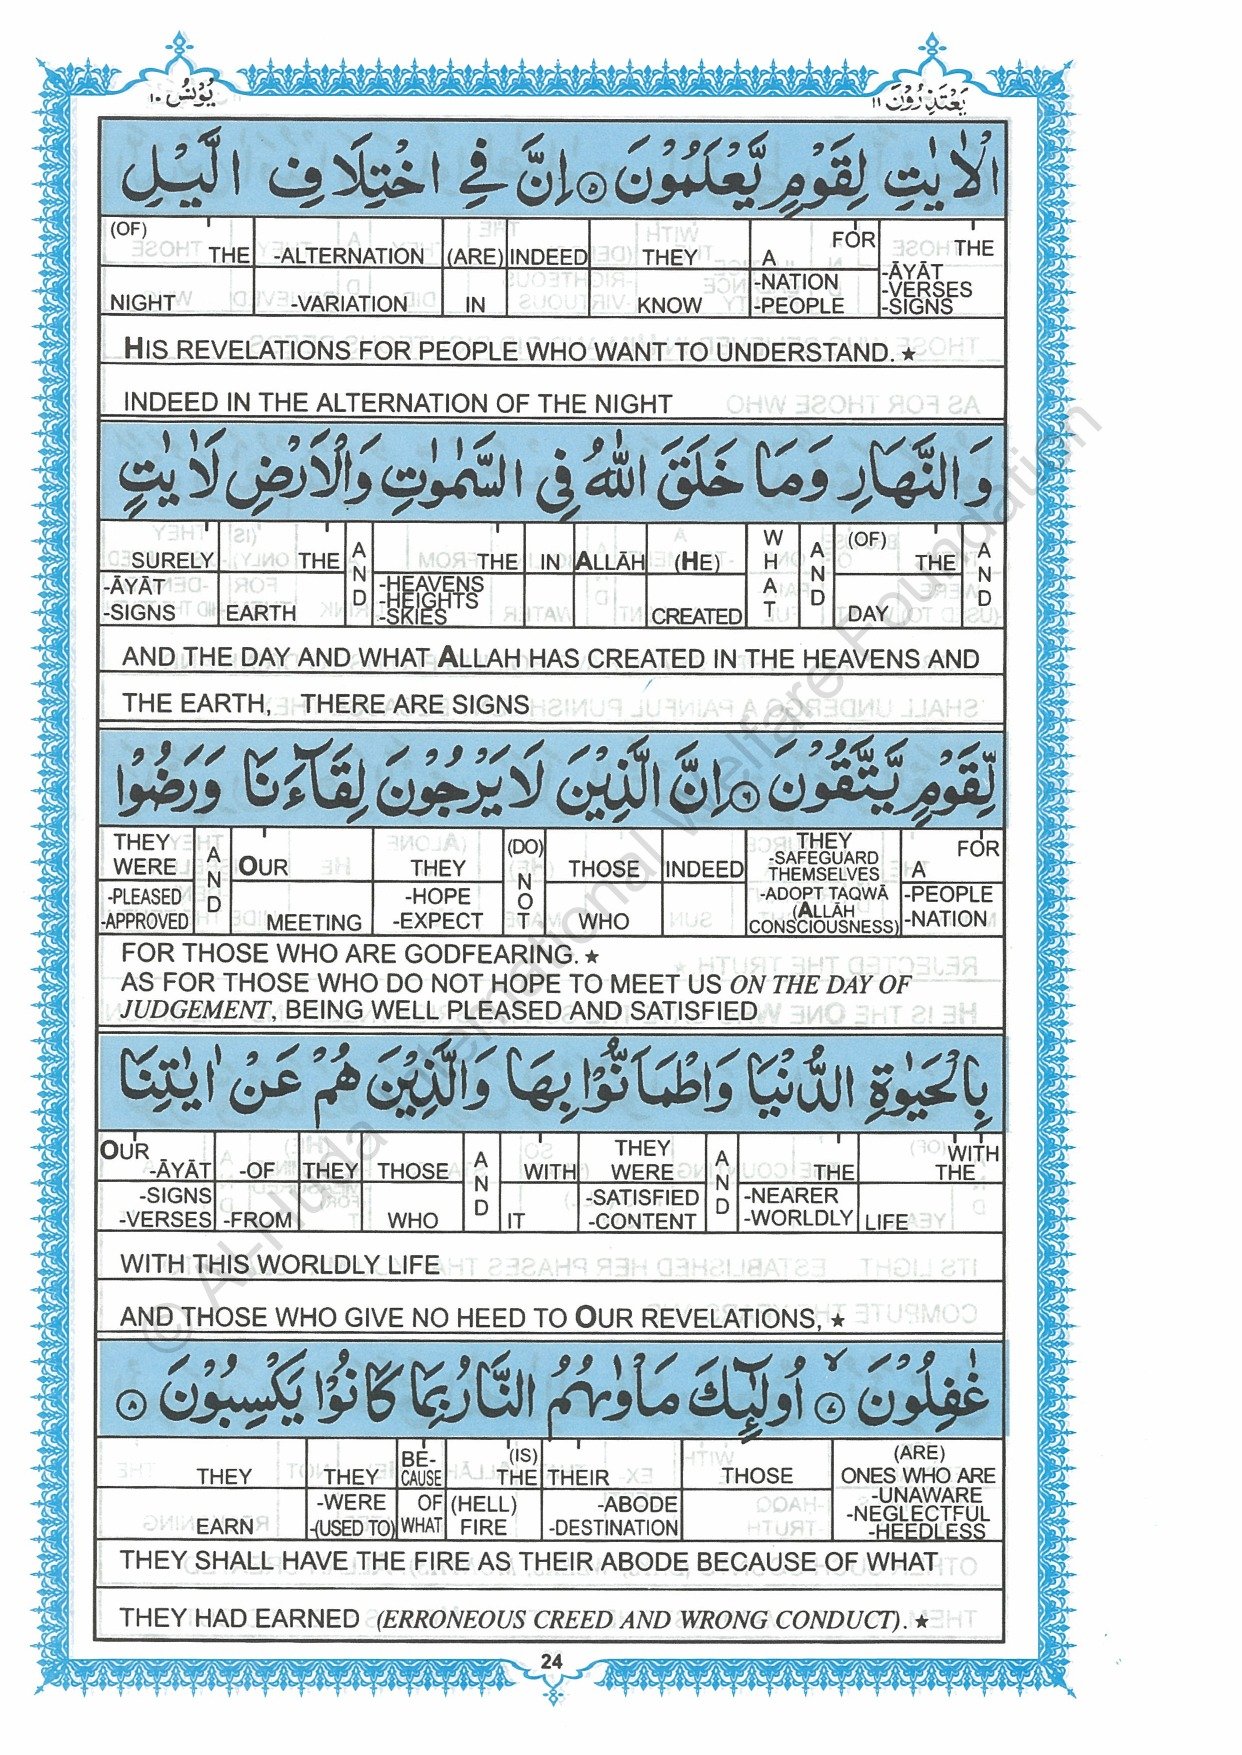 يَعْتَذِرُوْنَ ١١
يُوْنُسُ ١٠
الْاٰيٰتِ لِقَوْمٍ يَّعْلَمُوْنَ ۵ اِنَّ فِي اخْتِلَافِ الَّيْلِ
(OF) THE -ALTERNATION (ARE) INDEED THEY A FOR THE
NIGHT -VARIATION IN KNOW -NATION -PEOPLE -ĀYĀT -VERSES -SIGNS
HIS REVELATIONS FOR PEOPLE WHO WANT TO UNDERSTAND. ★
INDEED IN THE ALTERNATION OF THE NIGHT
وَالنَّهَارِ وَمَا خَلَقَ اللّٰهُ فِي السَّمٰوٰتِ وَالْاَرْضِ لَاٰيٰتٍ
SURELY THE AND THE IN ALLĀH (HE) WHAT AND (OF) THE AND
-ĀYĀT -SIGNS EARTH -HEAVENS -HEIGHTS -SKIES CREATED DAY
AND THE DAY AND WHAT ALLAH HAS CREATED IN THE HEAVENS AND
THE EARTH, THERE ARE SIGNS
لِّقَوْمٍ يَّتَّقُوْنَ ۶ اِنَّ الَّذِيْنَ لَا يَرْجُوْنَ لِقَآءَنَا وَرَضُوْا
THEY WERE AND OUR THEY (DO) NOT THOSE INDEED THEY -SAFEGUARD THEMSELVES A FOR
-PLEASED -APPROVED MEETING -HOPE -EXPECT WHO -ADOPT TAQWĀ (ALLĀH CONSCIOUSNESS) -PEOPLE -NATION
FOR THOSE WHO ARE GODFEARING. ★
AS FOR THOSE WHO DO NOT HOPE TO MEET US ON THE DAY OF
JUDGEMENT, BEING WELL PLEASED AND SATISFIED
بِالْحَيٰوةِ الدُّنْيَا وَاطْمَاَنُّوْا بِهَا وَالَّذِيْنَ هُمْ عَنْ اٰيٰتِنَا
OUR -ĀYĀT -OF THEY THOSE AND WITH THEY WERE AND THE WITH THE
-SIGNS -VERSES -FROM WHO IT -SATISFIED -CONTENT -NEARER -WORLDLY LIFE
WITH THIS WORLDLY LIFE
AND THOSE WHO GIVE NO HEED TO OUR REVELATIONS, ★
غٰفِلُوْنَ ۙ ۷ اُولٰٓئِكَ مَاْوٰىهُمُ النَّارُ بِمَا كَانُوْا يَكْسِبُوْنَ ۸
THEY THEY BE-CAUSE (IS) THE THEIR THOSE (ARE) ONES WHO ARE
EARN -WERE -(USED TO) OF WHAT (HELL) FIRE -ABODE -DESTINATION -UNAWARE -NEGLECTFUL -HEEDLESS
THEY SHALL HAVE THE FIRE AS THEIR ABODE BECAUSE OF WHAT
THEY HAD EARNED (ERRONEOUS CREED AND WRONG CONDUCT). ★
24
© Al-Huda International Welfare Foundation